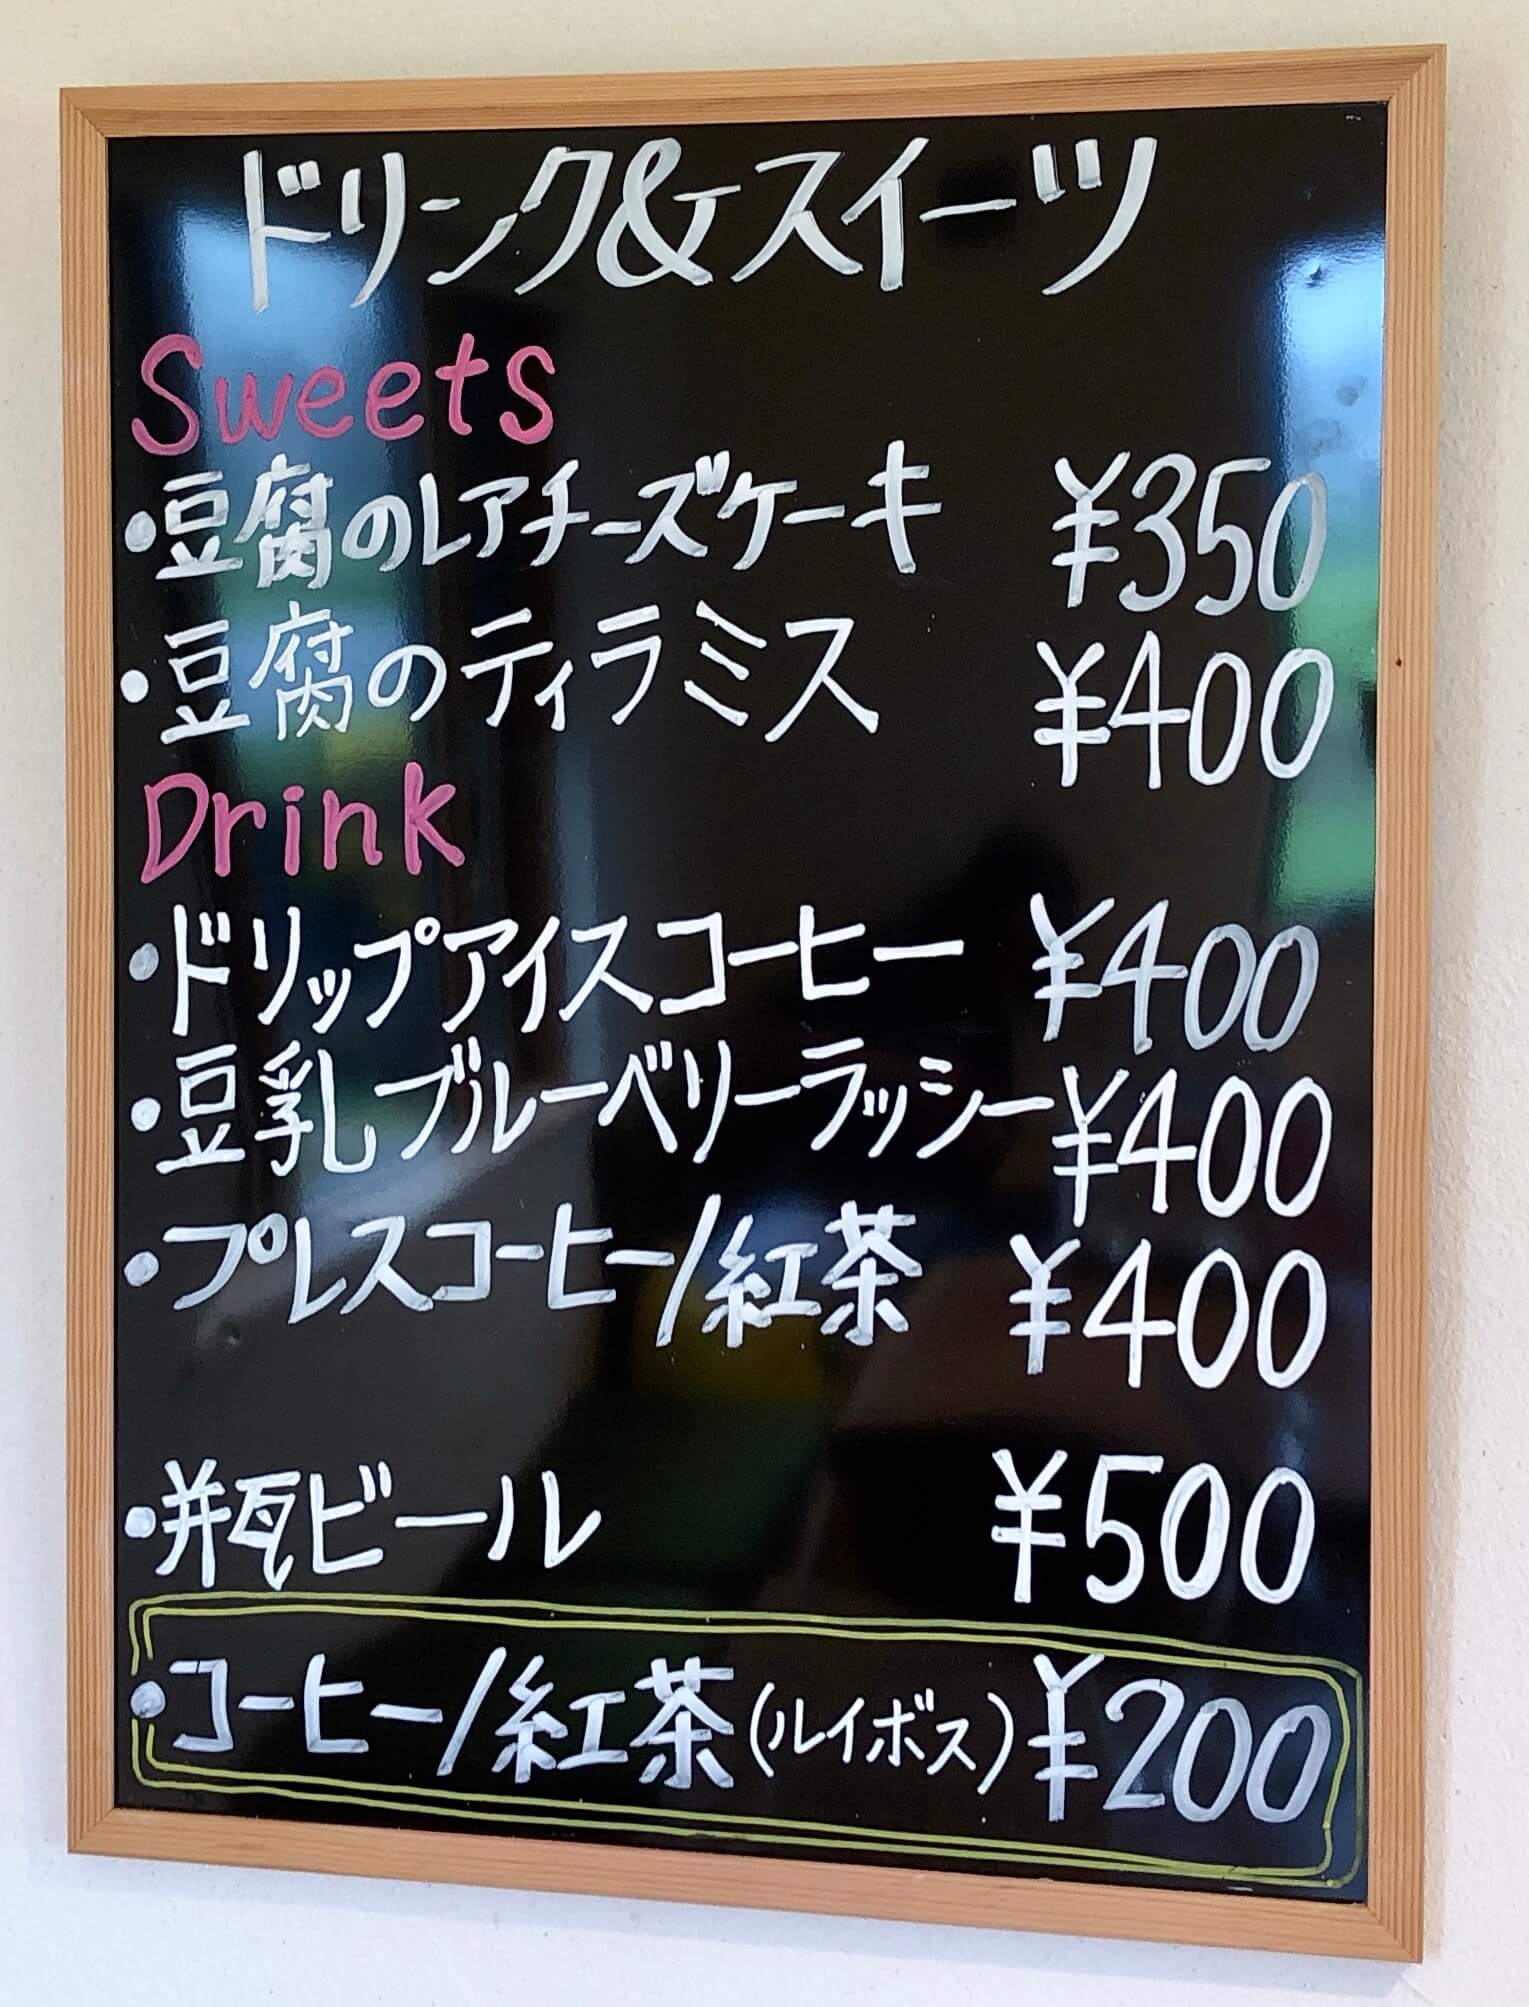 ドリンク&スイーツ
Sweets
・豆腐のレアチーズケーキ ¥350
・豆腐のティラミス ¥400
Drink
・ドリップアイスコーヒー ¥400
・豆乳ブルーベリーラッシー ¥400
・プレスコーヒー/紅茶 ¥400
・瓶ビール ¥500
・コーヒー/紅茶(ルイボス) ¥200